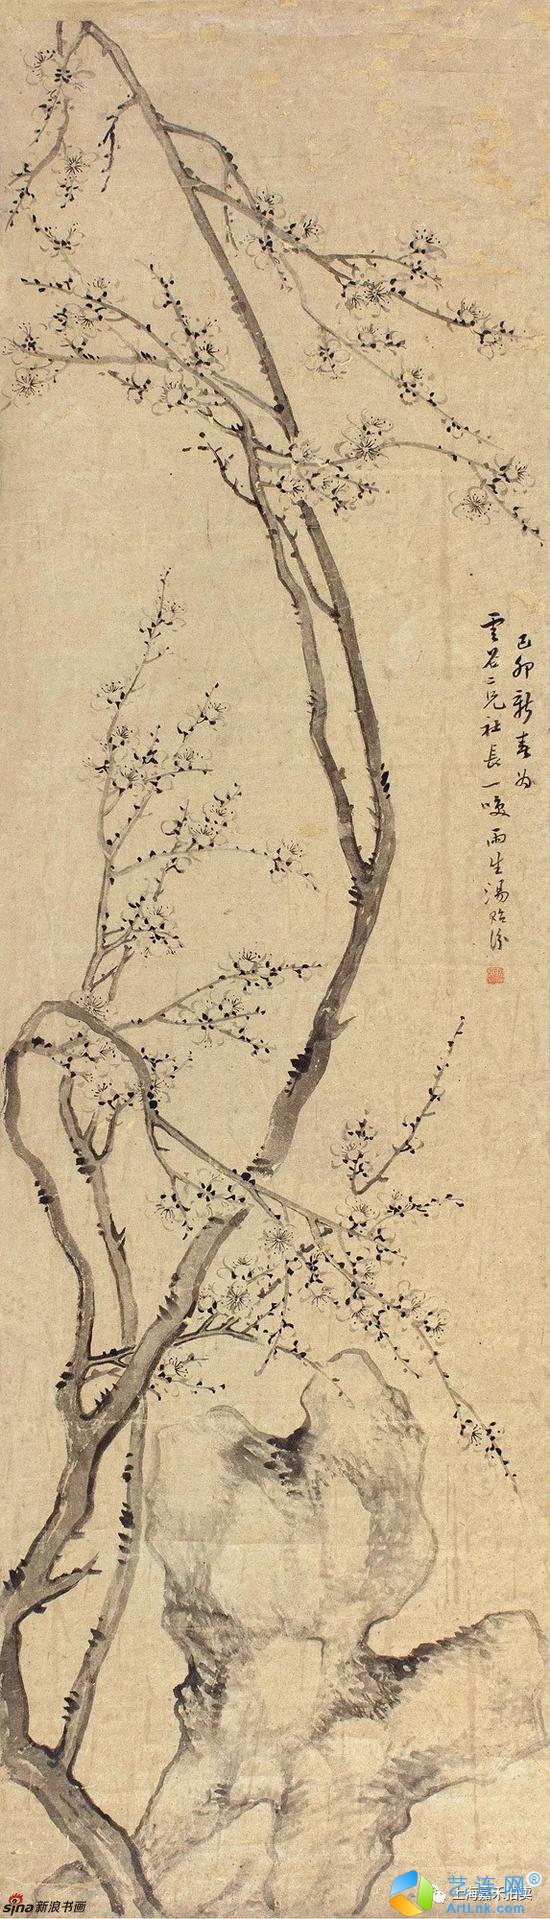 己卯新春为
雲谷二兄社長一哂雨生湯貽汾
sina新浪书画
上海嘉禾拍卖
艺连网®
ArtLnk.com